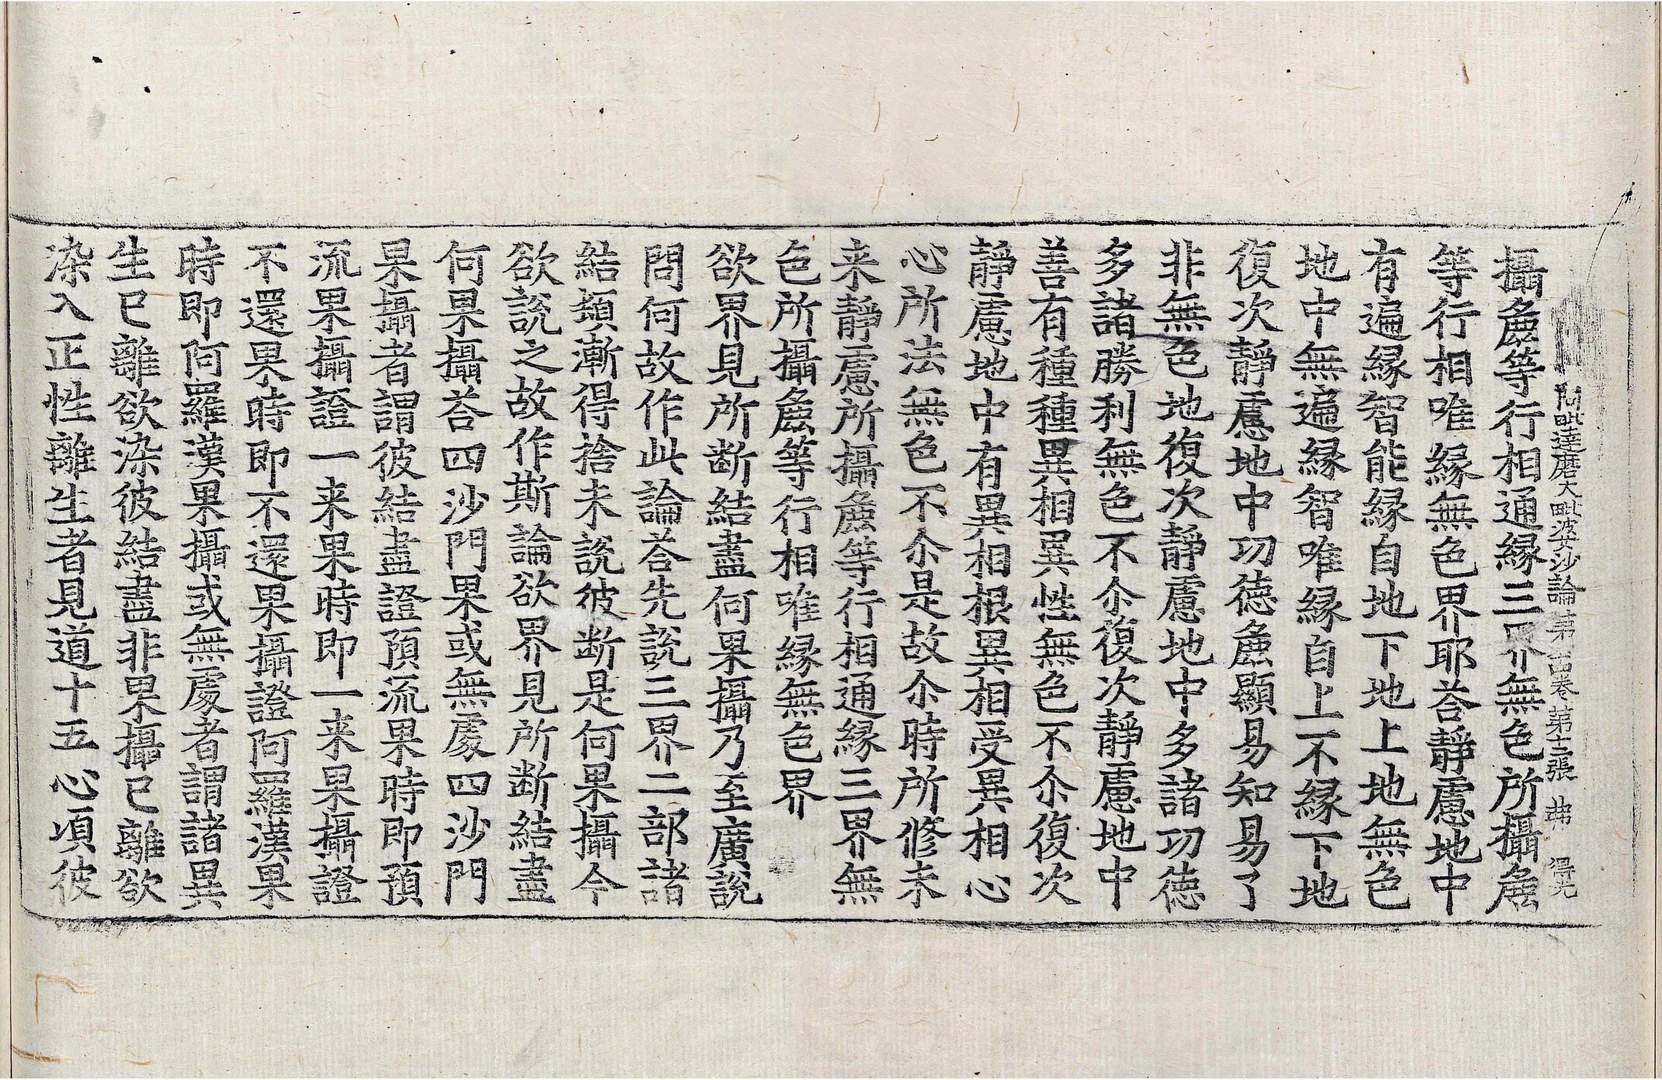 阿毗達磨大毗婆沙論第 卷 第 張 弗 得光
攝麁等行相通緣三界無色所攝麁
等行相唯緣無色界耶荅靜慮地中
有遍緣智能緣自地下地上地無色
地中無遍緣智唯緣自上不緣下地
復次靜慮地中功德麁顯易知易了
非無色地復次靜慮地中多諸功德
多諸勝利無色不尒復次靜慮地中
善有種種異相異性無色不尒復次
靜慮地中有異相根異相受異相心
心所法無色不尒是故尒時所修未
来靜慮所攝麁等行相通緣三界無
色所攝麁等行相唯緣無色界
欲界見所断結盡何果攝乃至廣說
問何故作此論荅先說三界二部諸
結頓漸得捨未說彼断是何果攝今
欲說之故作斯論欲界見所断結盡
何果攝荅四沙門果或無處四沙門
果攝者謂彼結盡證預流果時即預
流果攝證一来果時即一来果攝證
不還果時即不還果攝證阿羅漢果
時即阿羅漢果攝或無處者謂諸異
生已離欲染彼結盡非果攝已離欲
染入正性離生者見道十五心頃彼